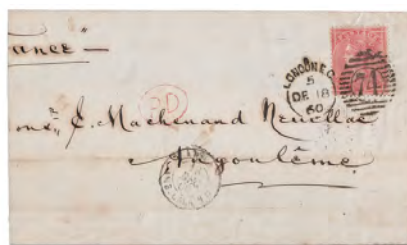 ance"
LONDON E.C.
5
DE 18
60
74
PD
ons. E. Machenaud Neuillac
Angoulême